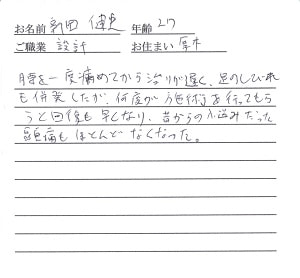 お名前 新田 健史 年齢 27
ご職業 設計 お住まい 厚木
腰を一度痛めてから治りが遅く、足のしびれ
も併発したが、何度か施術を行ってもら
うと回復も早くなり、昔からの悩みだった
頭痛もほとんどなくなった。